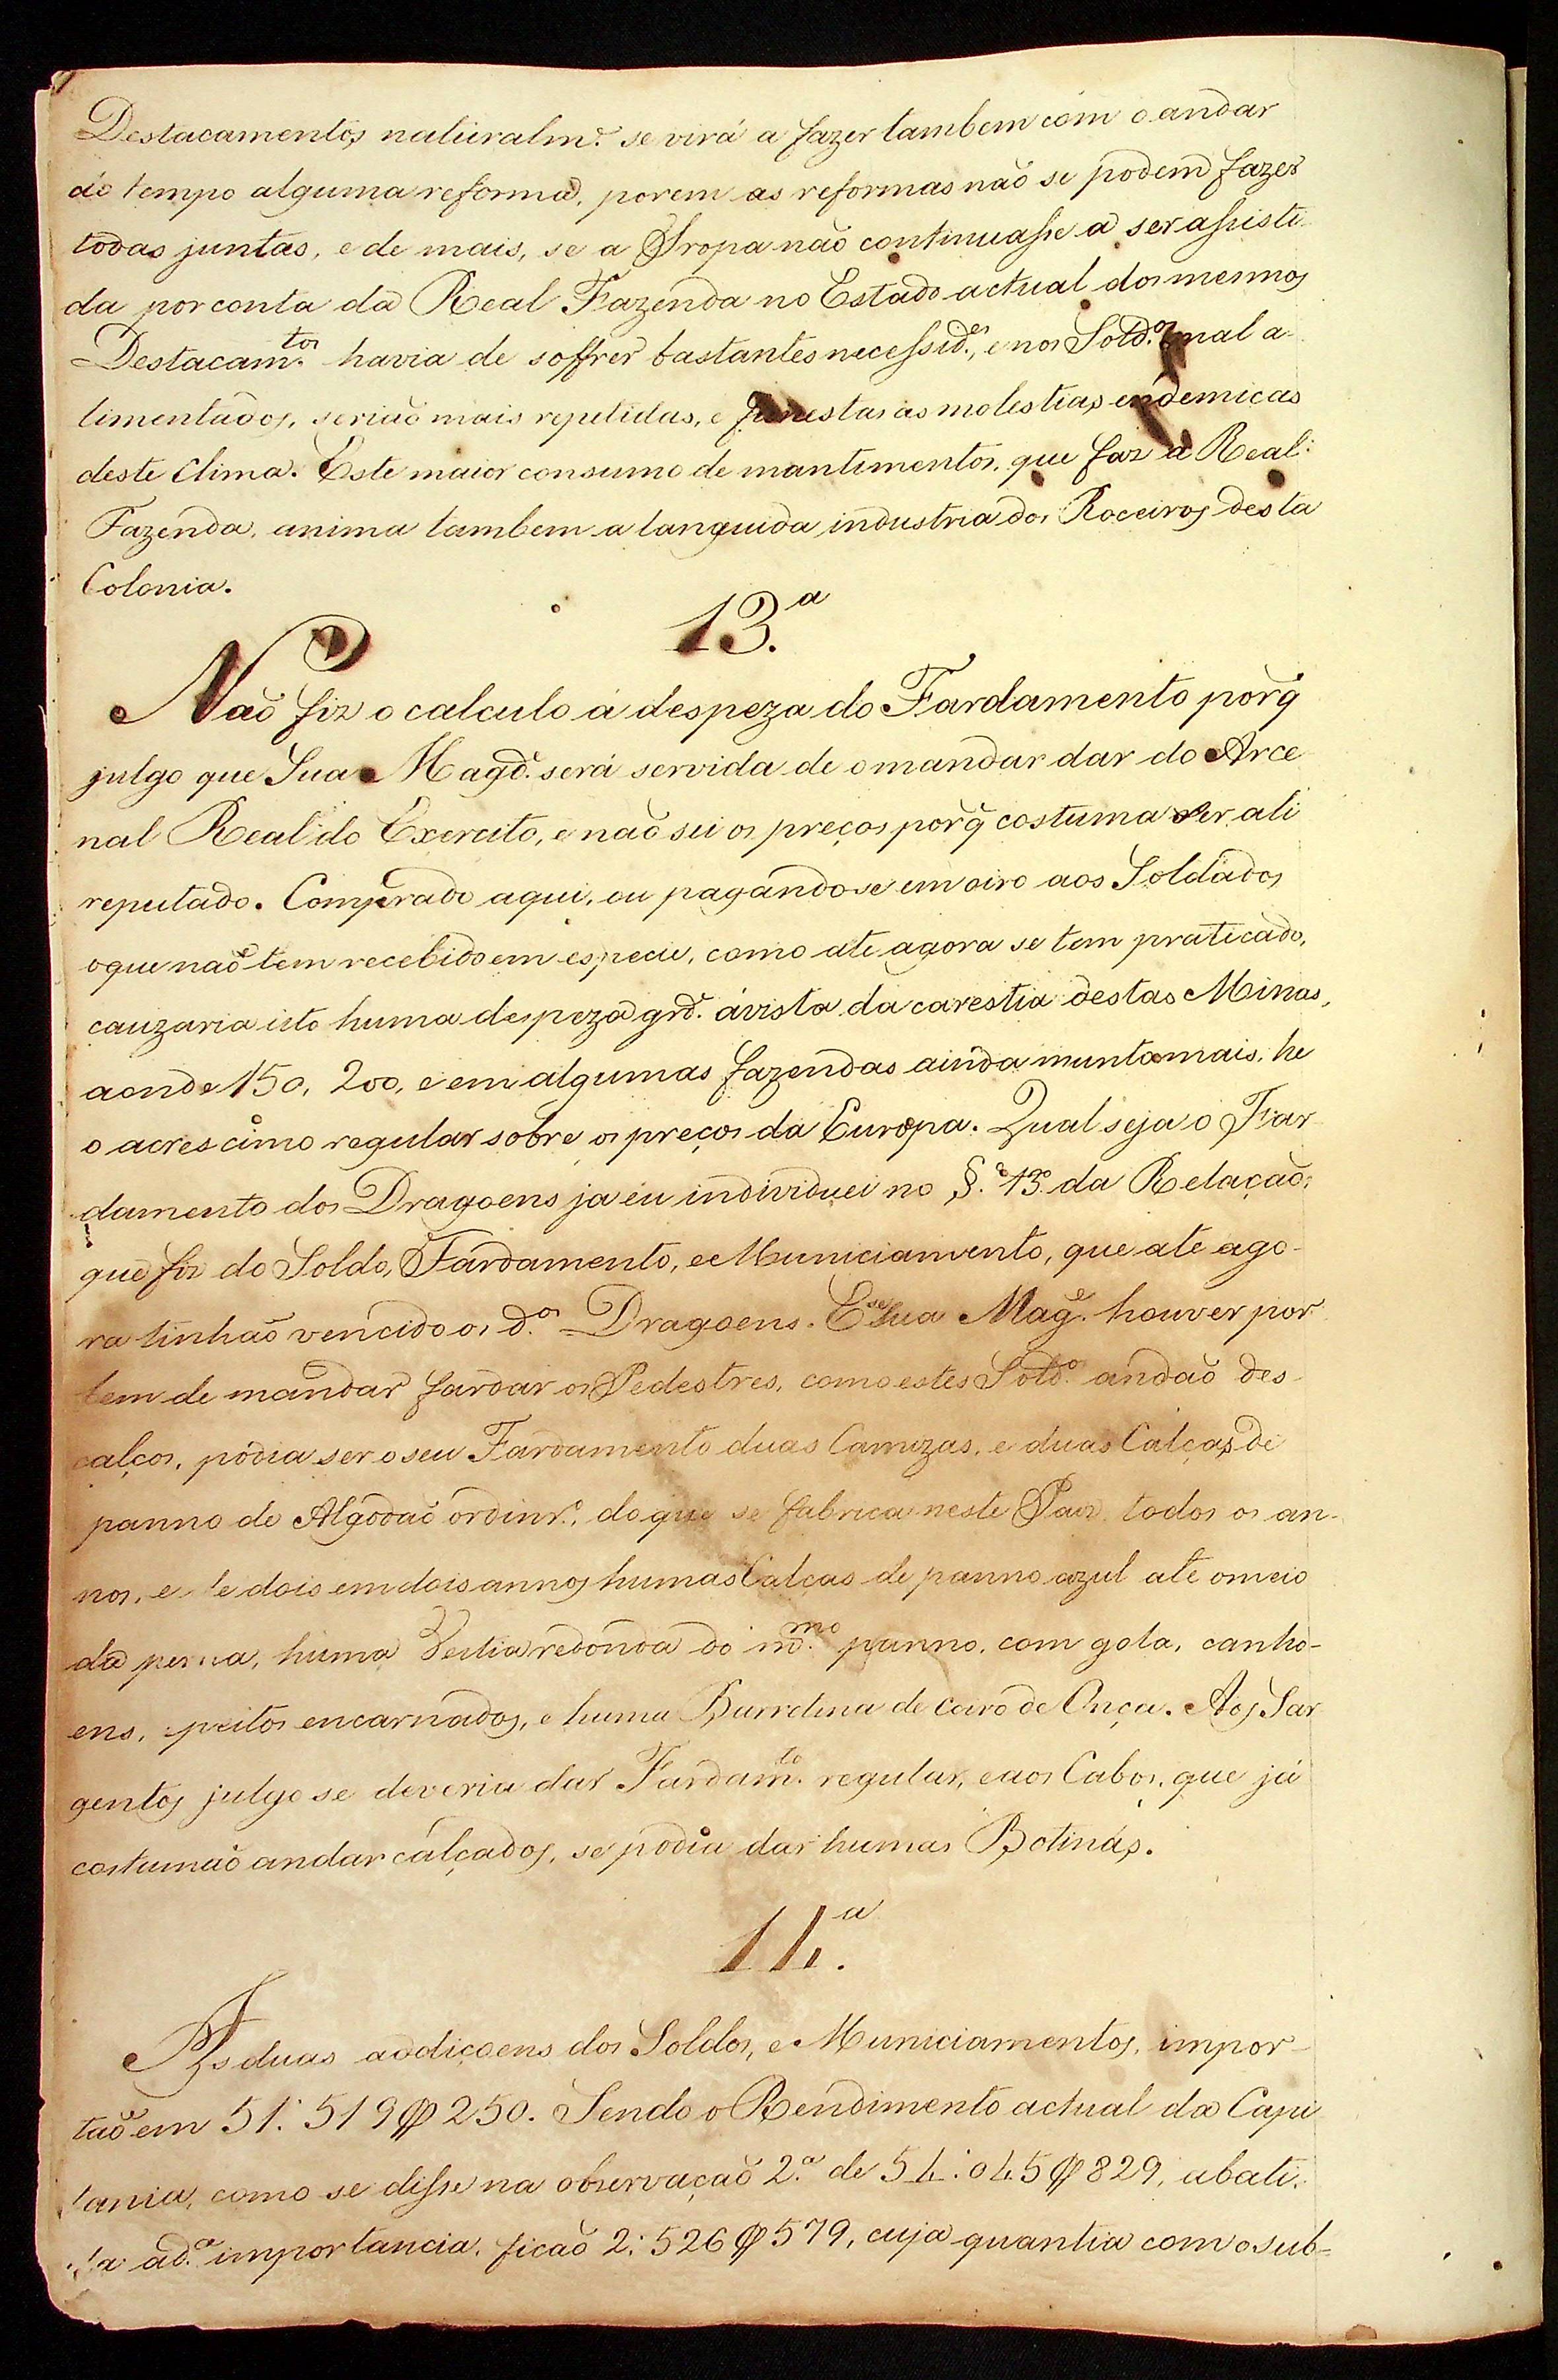 Destacamentos naturalm.e se virá a fazer tambem com o andar
do tempo alguma reforma, porem as reformas naõ se podem fazer
todas juntas, e de mais, se a Tropa naõ continuasse a ser assisti-
da por conta da Real Fazenda no Estado actual dos mesmos
Destacam.tos havia de soffrer bastantes necessid.es, e nos Sold.os mal a-
limentados, seriaõ mais repetidas, e funestas as molestias endemicas
deste Clima. Este maior consumo de mantimentos, que faz a Real
Fazenda, anima tambem a languida industria dos Roceiros desta
Colonia.
13.a
Naõ fiz o calculo á despeza do Fardamento porq̃
julgo que Sua Magd.e será servida de o mandar dar do Arce
nal Real do Exercito, e naõ sei os preços porq̃ costuma ser ali
reputado. Comprado aqui, ou pagandose em oiro aos Soldados
o que naõ tem recebido em especie, como ate agora se tem praticado,
cauzaria isto huma despeza grd.e ávista da carestia destas Minas,
aonde 150, 200, e em algumas fazendas ainda munto mais, he
o acrescimo regular sobre os preços da Europa. Qual seja o Far
damento dos Dragoens ja eu individuei no §.o 13.o da Relaçaõ,
que fiz do Soldo, Fardamento, e Municiamento, que ate ago-
ra tinhaõ vencido os d.os Dragoens. E se Sua Mag.e houver por
bem de mandar fardar os Pedestres, como estes Sold.os andaõ des-
calços, podia ser o seu Fardamento duas Camizas, e duas Calças de
panno de Algodaõ ordinr.o, do que se fabrica neste Paiz, todos os an-
nos, e de dois em dois annos humas Calças de panno azul ate o meio
da perna, huma Vestia redonda do m.mo panno, com gola, canho-
ens, e peitos encarnados, e huma Barretina de coiro de Onça. Aos Sar
gentos julgo se deveria dar Fardam.to regular, e aos Cabos, que já
costumaõ andar calçados, se podia dar humas Botinas.
14.a
As duas addiçoens dos Soldos, e Municiamentos, impor-
taõ em 51:519$250. Sendo o Rendimento actual da Capi
tania, como se disse na observaçaõ 2.a de 54:045$829, abati-
da a d.a importancia, ficaõ 2:526$579, cuja quantia com o sub-